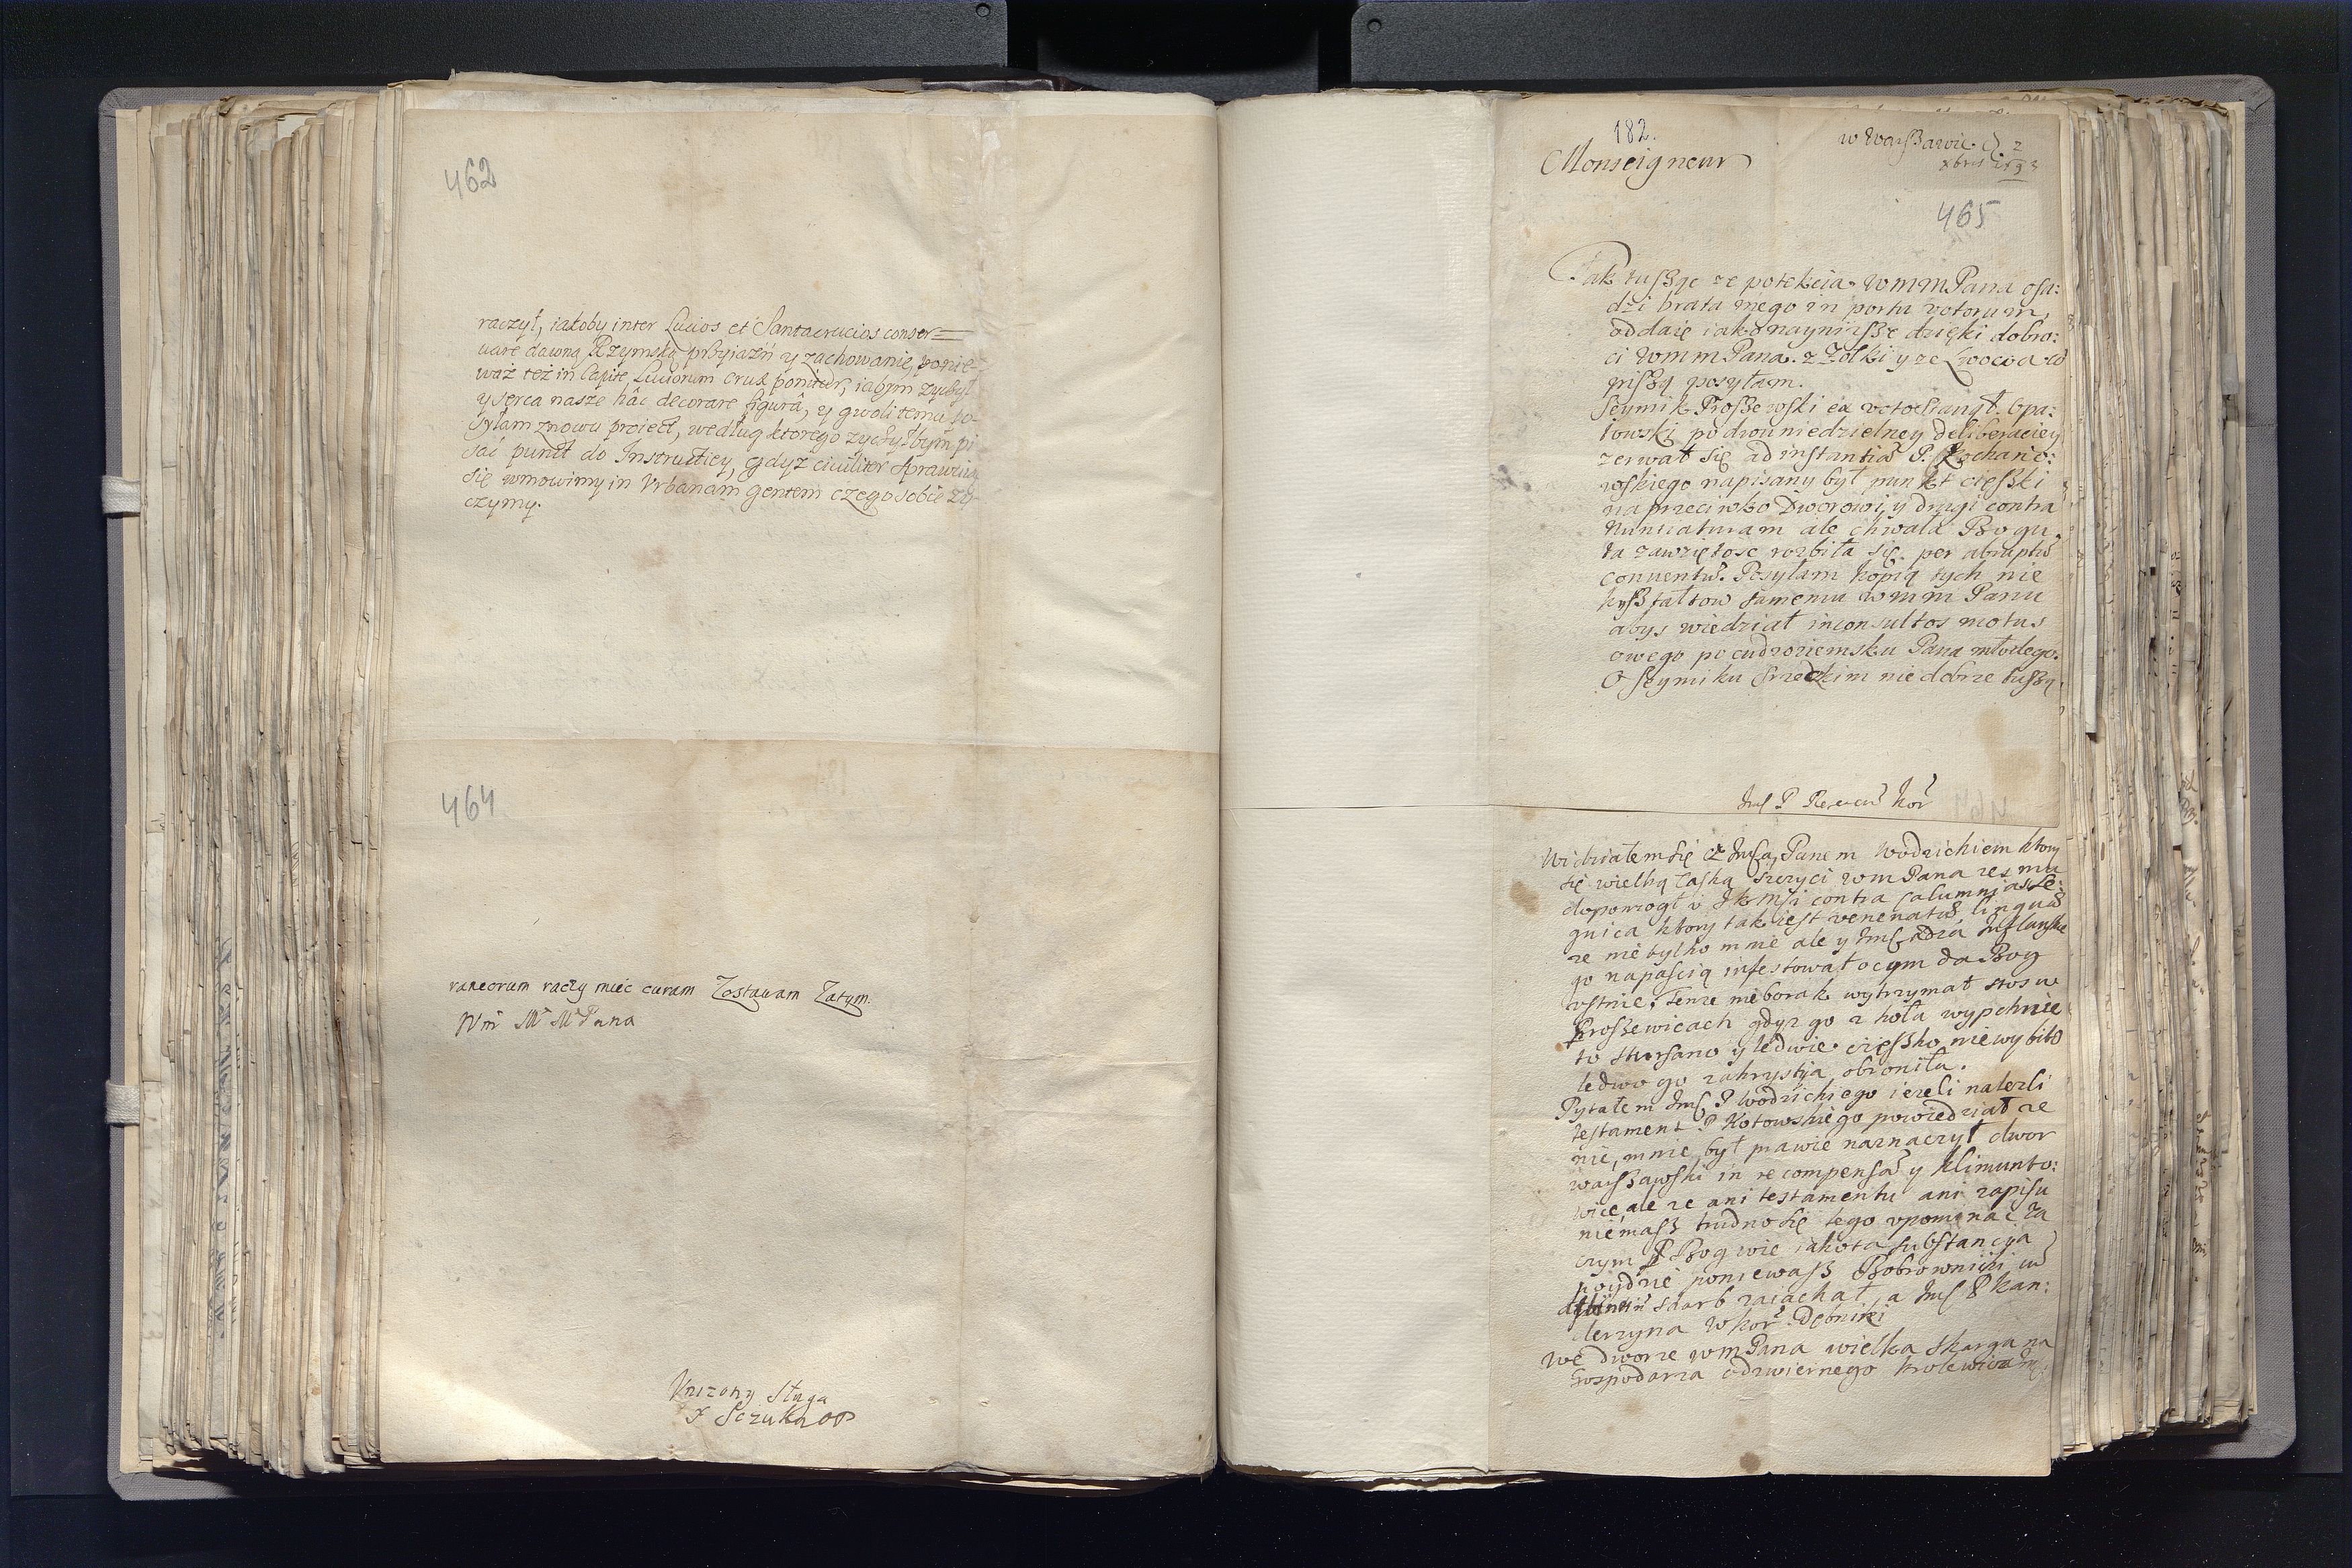 462
raczył, iakoby inter Lucios et Santacrucios conser=
uare dawną Rzymską przyiaźń y zachowanie, ponie-
waż też in Capite Luciorum crux ponitur, iabym życzył
y serca nasze hâc decorare figurâ, y gwoli temu po-
syłam znowu proiect, według ktorego życzyłbym pi
sać punct do Instructiey, gdyż ciuiliter sprawią
się wmowimy in Vrbanam gentem czego sobie ży-
czymy.
464
raneorum raczy miec curam Zostauam Zatym.
Wm̃ M M Pana
Vnizony Sługa
S Sczuka
182.
Monseigneur
w Warszawie d. 2
xbris
465
Tak tuszę ze potekcia WMMPana osa:
dzi brata mego in portu votorum,
oddaię iako nayniższe dzięki dobro:
ci WMMPana. z Zołki y ze Lwowa co
piszą posyłam.
Seymik Proszowski ex voto stanął. Opa:
towski po dwuniedzielney deliberaciey
zerwał się ad instantia P. Kochano:
wskiego napisany był punkt cięszki
naprzeciwko Dworowi, y drugi contra
Nuntiaturam ale chwała Bogu,
ta zawziętosc rozbiła się per abruptu
conuentu. Posyłam kopią tych nie
kształtow samemu WMM Panu
abys wiedział inconsultos motus
owego po cudzoziemsku Pana młodego.
O Seymiku Srzedzkim nie dobrze tuszę.
Jmś P Kor
Widziałem się z Jmścią Panem Wodzickiem ktory
się wielką łaską szczyci WM Pana zes mu
dopomogł v JKMsci contra calumnias Le:
gnica ktory tak iest venenatus lingua
ze nie tylko mnie ale y Jmści Xdza Inflanskie
go napascią infestował oczym da Bog
vstnie. Tenze nieborak wytrzymał stos w
Proszewicach gdyz go z koła wypchnie
to stursano y ledwie cięszko nie wybito
ledwo go zakrystya obroniła.
Pytałem Jmś P Wodzickiego iezeli nalezli
testament P Kotowskiego powiedział ze
nie, mnie był prawie naznaczył dwor
warszawski in recompensa y Klimunto:
wice, ale ze ani testamentu ani zapisu
niemasz trudno się tego vpominać za
czym P Bog wie iako ta substancya
poydzie poniewasz Bobrownicki iuż
skarb zaiachał, a Jmś P Kan:
clerzyna W Kor Dębniki
We dworze WMPana wielka skarga na
Gospodarza odzwiernego krolewicza